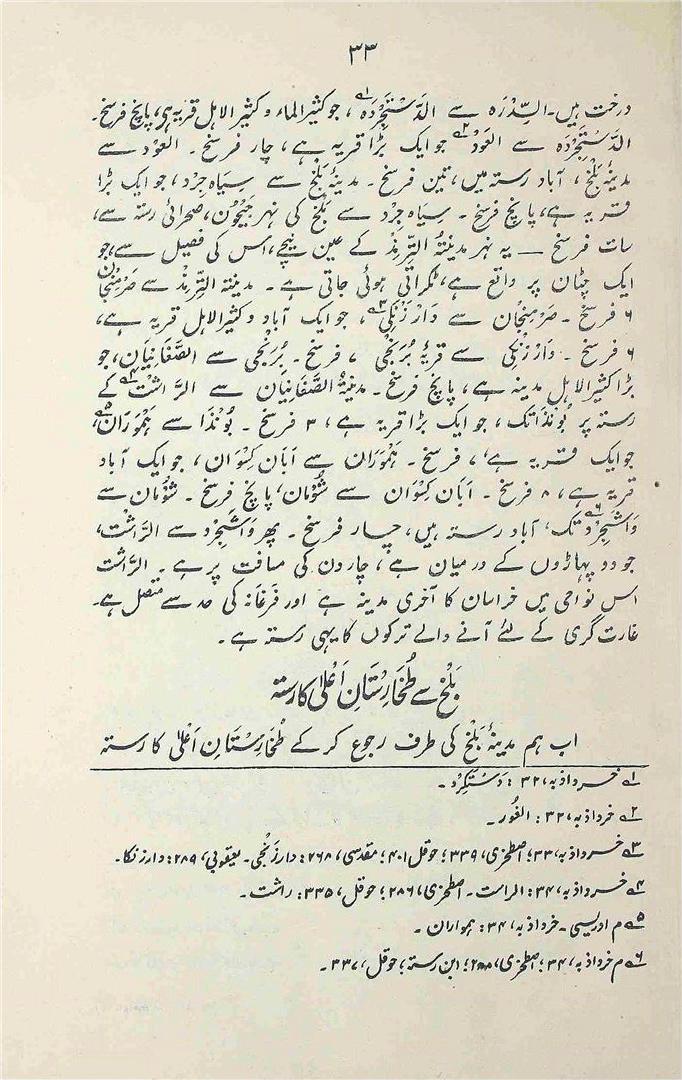 ۳۳
درخت ہیں۔ السِّدْرَہ سے الدَّسْتَجِرْدَہ ۱ے، جو کثیر الماء و کثیر الاہل قریہ ہے، پانچ فرسخ۔
الدَّسْتَجِرْدَہ سے العَوْد ۲ے جو ایک بڑا قریہ ہے، چار فرسخ۔ العَوْد سے
مدینۂ بَلْخ، آباد رستہ میں، تین فرسخ۔ مدینۂ بَلْخ سے سِیَاہ جِرْد، جو ایک بڑا
قریہ ہے، پانچ فرسخ۔ سِیَاہ جِرْد سے بَلْخ کی نہر جَیْحُون، صحرائی رستہ سے،
سات فرسخ — یہ نہر مدینۃُ التِّرْمِذ کے عین نیچے، اس کی فصیل سے، جو
ایک چٹان پر واقع ہے، ٹکراتی ہوئی جاتی ہے۔ مدینۃ التِّرْمِذ سے صَرْمِنْجَان
۶ فرسخ۔ صَرْمِنْجَان سے دَارْزَنْکی ۳ے، جو ایک آباد و کثیر الاہل قریہ ہے،
۶ فرسخ۔ دَارْزَنْکِی سے قریۂ بُرَنْجِی ۷ فرسخ۔ بُرَنْجِی سے الصَّغَانِیَان، جو
بڑا کثیر الاہل مدینہ ہے، پانچ فرسخ۔ مدینۃُ الصَّغَانِیَان سے الرَّاشْت ۴ے کے
رستہ پر بُونْذَا تک، جو ایک بڑا قریہ ہے، ۳ فرسخ۔ بُونْذَا سے ہَمْوَرَان ۵ے،
جو ایک قریہ ہے، ۷ فرسخ۔ ہَمْوَرَان سے اَبَان کَسْوَان، جو ایک آباد
قریہ ہے، ۸ فرسخ۔ اَبَان کَسْوَان سے شُوْمَان، پانچ فرسخ۔ شُوْمَان سے
وَاشَجِرْد ۶ے تک، آباد رستہ ہیں، چار فرسخ۔ پھر وَاشَجِرْد سے الرَّاشْت،
جو دو پہاڑوں کے درمیان ہے، چار دن کی مسافت پر ہے۔ الرَّاشْت
اس نواحی میں خراسان کا آخری مدینہ ہے اور فَرْغَانَہ کی حد سے متصل ہے۔
غارت گری کے لئے آنے والے ترکوں کا یہی رستہ ہے۔
بَلْخ سے طُخَارِسْتَانِ اَعْلیٰ کا رستہ
اب ہم مدینۂ بَلْخ کی طرف رجوع کر کے طُخَارِسْتَانِ اَعْلیٰ کا رستہ
۱ے خرداذبہ، ۳۲: دَسْتَکِرْد۔
۲ے خرداذبہ، ۳۲: الغُور۔
۳ے خرداذبہ، ۳۳؛ اصطخری، ۳۳۹؛ حوقل ۴۰۱؛ مقدسی، ۲۶۸: دارزَنْجی۔ یعقوبی، ۲۸۹: دارزنکا۔
۴ے خرداذبہ، ۳۴: الراست۔ اصطخری، ۲۸۶؛ حوقل، ۳۳۵: راشت۔
۵ے م ادریسی۔ خرداذبہ، ۳۴: ہمواران۔
۶ے م خرداذبہ، ۳۴؛ اصطخری، ۲۹۸؛ ابن رستہ؛ حوقل، ۳۳۷۔